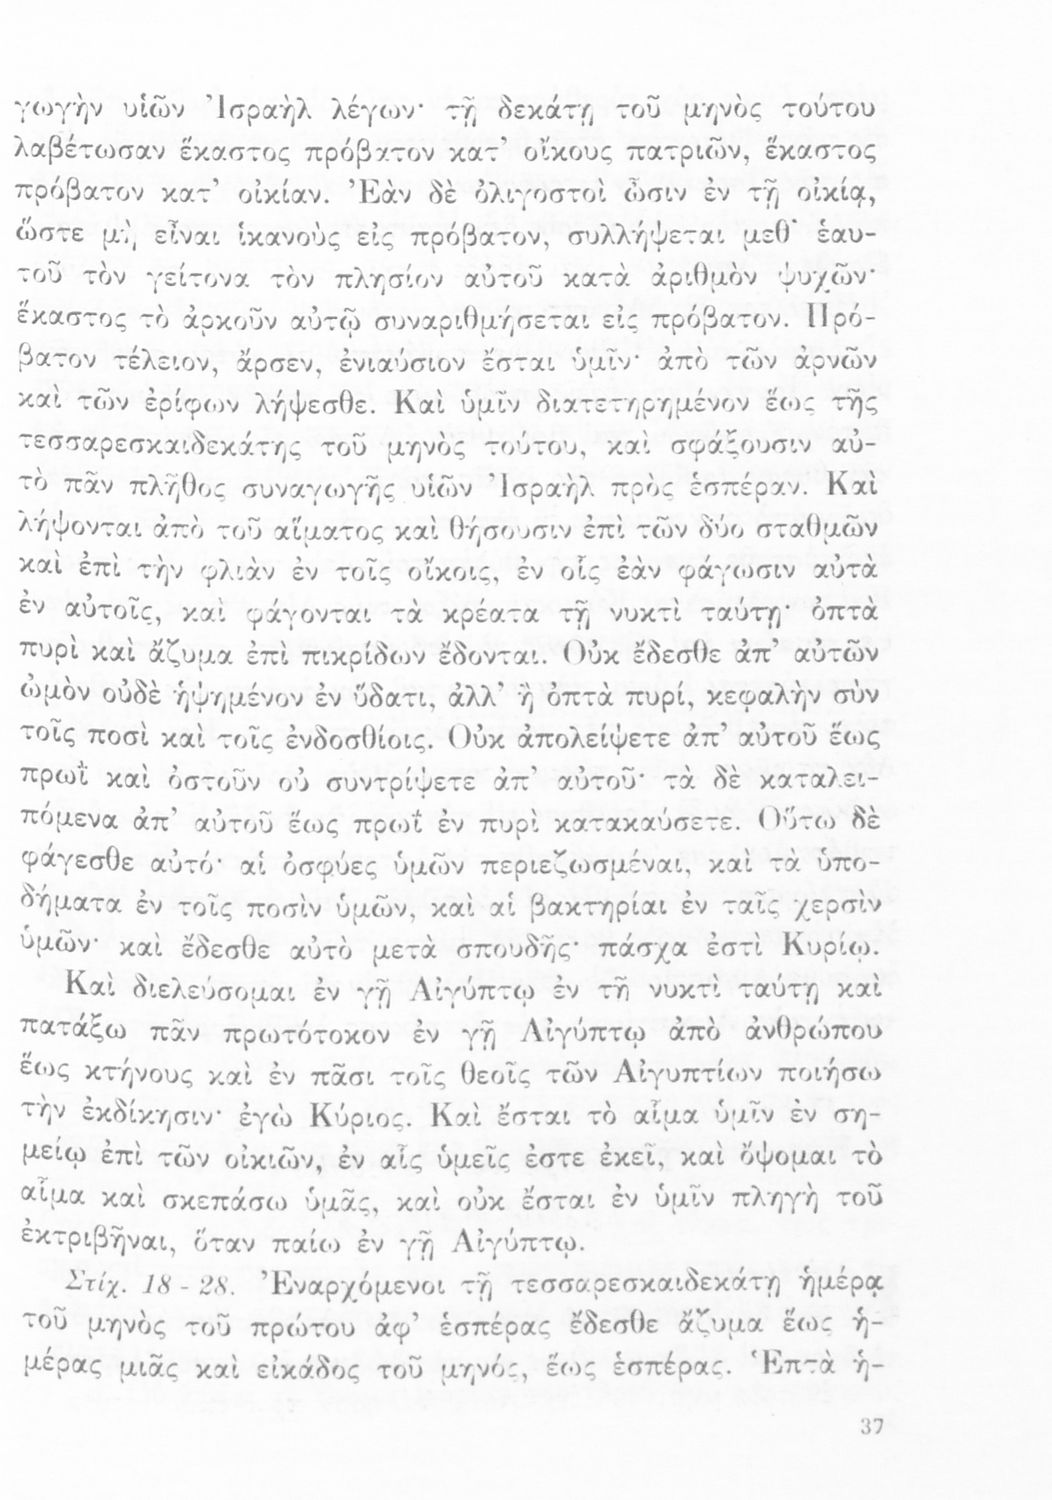 γωγὴν υἱῶν Ἰσραὴλ λέγων· τῇ δεκάτῃ τοῦ μηνὸς τούτου
λαβέτωσαν ἕκαστος πρόβατον κατ’ οἴκους πατριῶν, ἕκαστος
πρόβατον κατ’ οἰκίαν. Ἐὰν δὲ ὀλιγοστοὶ ὦσιν ἐν τῇ οἰκίᾳ,
ὥστε μὴ εἶναι ἱκανοὺς εἰς πρόβατον, συλλήψεται μεθ’ ἑαυ-
τοῦ τὸν γείτονα τὸν πλησίον αὐτοῦ κατὰ ἀριθμὸν ψυχῶν·
ἕκαστος τὸ ἀρκοῦν αὐτῷ συναριθμήσεται εἰς πρόβατον. Πρό-
βατον τέλειον, ἄρσεν, ἐνιαύσιον ἔσται ὑμῖν· ἀπὸ τῶν ἀρνῶν
καὶ τῶν ἐρίφων λήψεσθε. Καὶ ὑμῖν διατετηρημένον ἕως τῆς
τεσσαρεσκαιδεκάτης τοῦ μηνὸς τούτου, καὶ σφάξουσιν αὐ-
τὸ πᾶν πλῆθος συναγωγῆς υἱῶν Ἰσραὴλ πρὸς ἑσπέραν. Καὶ
λήψονται ἀπὸ τοῦ αἵματος καὶ θήσουσιν ἐπὶ τῶν δύο σταθμῶν
καὶ ἐπὶ τὴν φλιὰν ἐν τοῖς οἴκοις, ἐν οἷς ἐὰν φάγωσιν αὐτὰ
ἐν αὐτοῖς, καὶ φάγονται τὰ κρέατα τῇ νυκτὶ ταύτῃ· ὀπτὰ
πυρὶ καὶ ἄζυμα ἐπὶ πικρίδων ἔδονται. Οὐκ ἔδεσθε ἀπ’ αὐτῶν
ὠμὸν οὐδὲ ἡψημένον ἐν ὕδατι, ἀλλ’ ἢ ὀπτὰ πυρί, κεφαλὴν σὺν
τοῖς ποσὶ καὶ τοῖς ἐνδοσθίοις. Οὐκ ἀπολείψετε ἀπ’ αὐτοῦ ἕως
πρωῒ καὶ ὀστοῦν οὐ συντρίψετε ἀπ’ αὐτοῦ· τὰ δὲ καταλει-
πόμενα ἀπ’ αὐτοῦ ἕως πρωῒ ἐν πυρὶ κατακαύσετε. Οὕτω δὲ
φάγεσθε αὐτό· αἱ ὀσφύες ὑμῶν περιεζωσμέναι, καὶ τὰ ὑπο-
δήματα ἐν τοῖς ποσὶν ὑμῶν, καὶ αἱ βακτηρίαι ἐν ταῖς χερσὶν
ὑμῶν· καὶ ἔδεσθε αὐτὸ μετὰ σπουδῆς· πάσχα ἐστὶ Κυρίῳ.
Καὶ διελεύσομαι ἐν γῇ Αἰγύπτῳ ἐν τῇ νυκτὶ ταύτῃ καὶ
πατάξω πᾶν πρωτότοκον ἐν γῇ Αἰγύπτῳ ἀπὸ ἀνθρώπου
ἕως κτήνους καὶ ἐν πᾶσι τοῖς θεοῖς τῶν Αἰγυπτίων ποιήσω
τὴν ἐκδίκησιν· ἐγὼ Κύριος. Καὶ ἔσται τὸ αἷμα ὑμῖν ἐν ση-
μείῳ ἐπὶ τῶν οἰκιῶν, ἐν αἷς ὑμεῖς ἐστε ἐκεῖ, καὶ ὄψομαι τὸ
αἷμα καὶ σκεπάσω ὑμᾶς, καὶ οὐκ ἔσται ἐν ὑμῖν πληγὴ τοῦ
ἐκτριβῆναι, ὅταν παίω ἐν γῇ Αἰγύπτῳ.
Στίχ. 18 - 28. Ἐναρχόμενοι τῇ τεσσαρεσκαιδεκάτῃ ἡμέρᾳ
τοῦ μηνὸς τοῦ πρώτου ἀφ’ ἑσπέρας ἔδεσθε ἄζυμα ἕως ἡ-
μέρας μιᾶς καὶ εἰκάδος τοῦ μηνός, ἕως ἑσπέρας. Ἑπτὰ ἡ-
37